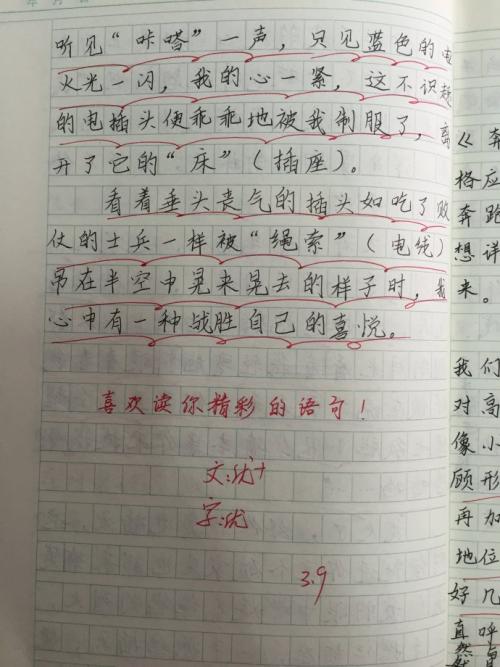 听见“咔嗒”一声，只见蓝色的电
火光一闪，我的心一紧，这不识趣
的电插头便乖乖地被我制服了，离
开了它的“床”（插座）。
看着垂头丧气的插头如吃了败
仗的士兵一样被“绳索”（电线）
吊在半空中晃来晃去的样子时，我
心中有一种战胜自己的喜悦。
喜欢读你精彩的语句！
文：优+
字：优
3.9
《奔
格应
奔跑
想详
来。
我们
对高
像小
顾形
再加
地位
好几
直呼